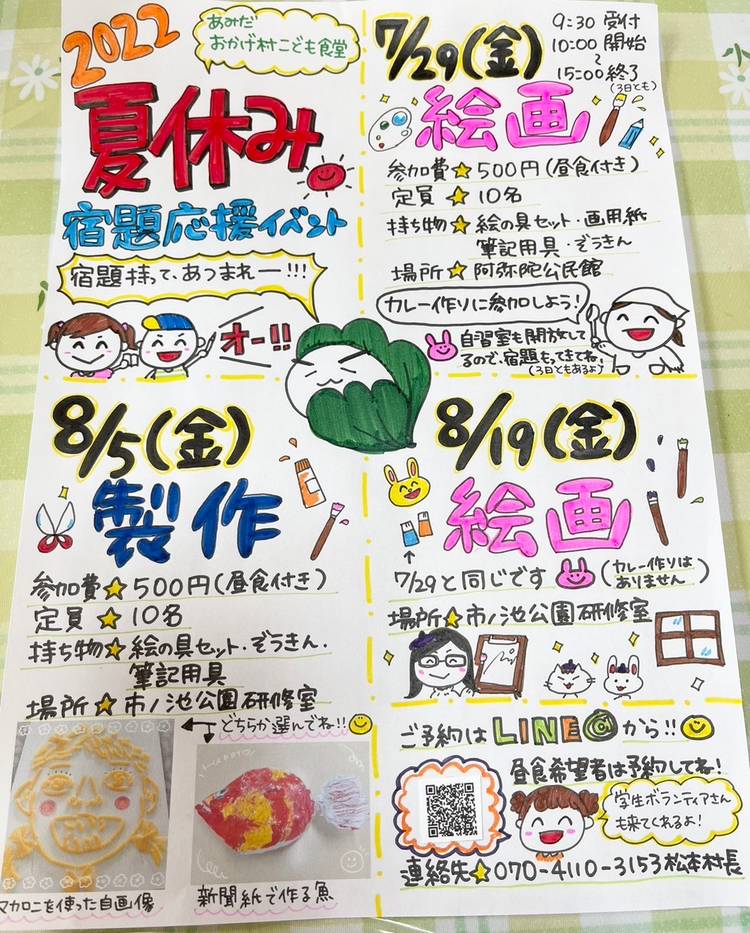 2022
あみだ
おかげ村こども食堂
夏休み
宿題応援イベント
宿題持って、あつまれー!!!
オー!!
7/29(金)
9:30 受付
10:00 開始
~
15:00 終了
(3日とも)
絵画
参加費☆500円(昼食付き)
定員☆10名
持ち物☆絵の具セット・画用紙
筆記用具・ぞうきん
場所☆阿弥陀公民館
カレー作りに参加しよう!
自習室も開放して
るので、宿題もってきてね!
(3日ともあるよ)
8/5(金)
製作
参加費☆500円(昼食付き)
定員☆10名
持ち物☆絵の具セット・ぞうきん・
筆記用具
場所☆市ノ池公園研修室
どちらか選んでね!!
マカロニを使った自画像
新聞紙で作る魚
8/19(金)
絵画
7/29と同じです
(カレー作りは
ありません)
場所☆市ノ池公園研修室
ご予約はLINE@から!!
昼食希望者は予約してね!
学生ボランティアさん
も来てくれるよ!
連絡先☆070-4110-3153松本村長